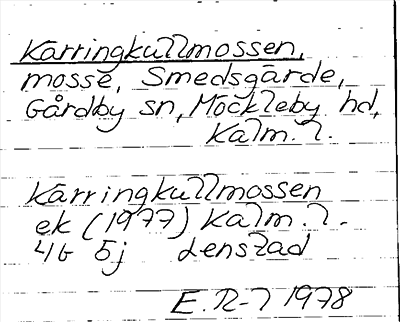 Kärringkullmossen,
mosse, Smedsgärde,
Gårdby sn, Möckleby hd,
Kalm. l.
Kärringkullmossen
ek (1977) Kalm. l.
4G 5j
E. R-l 1978